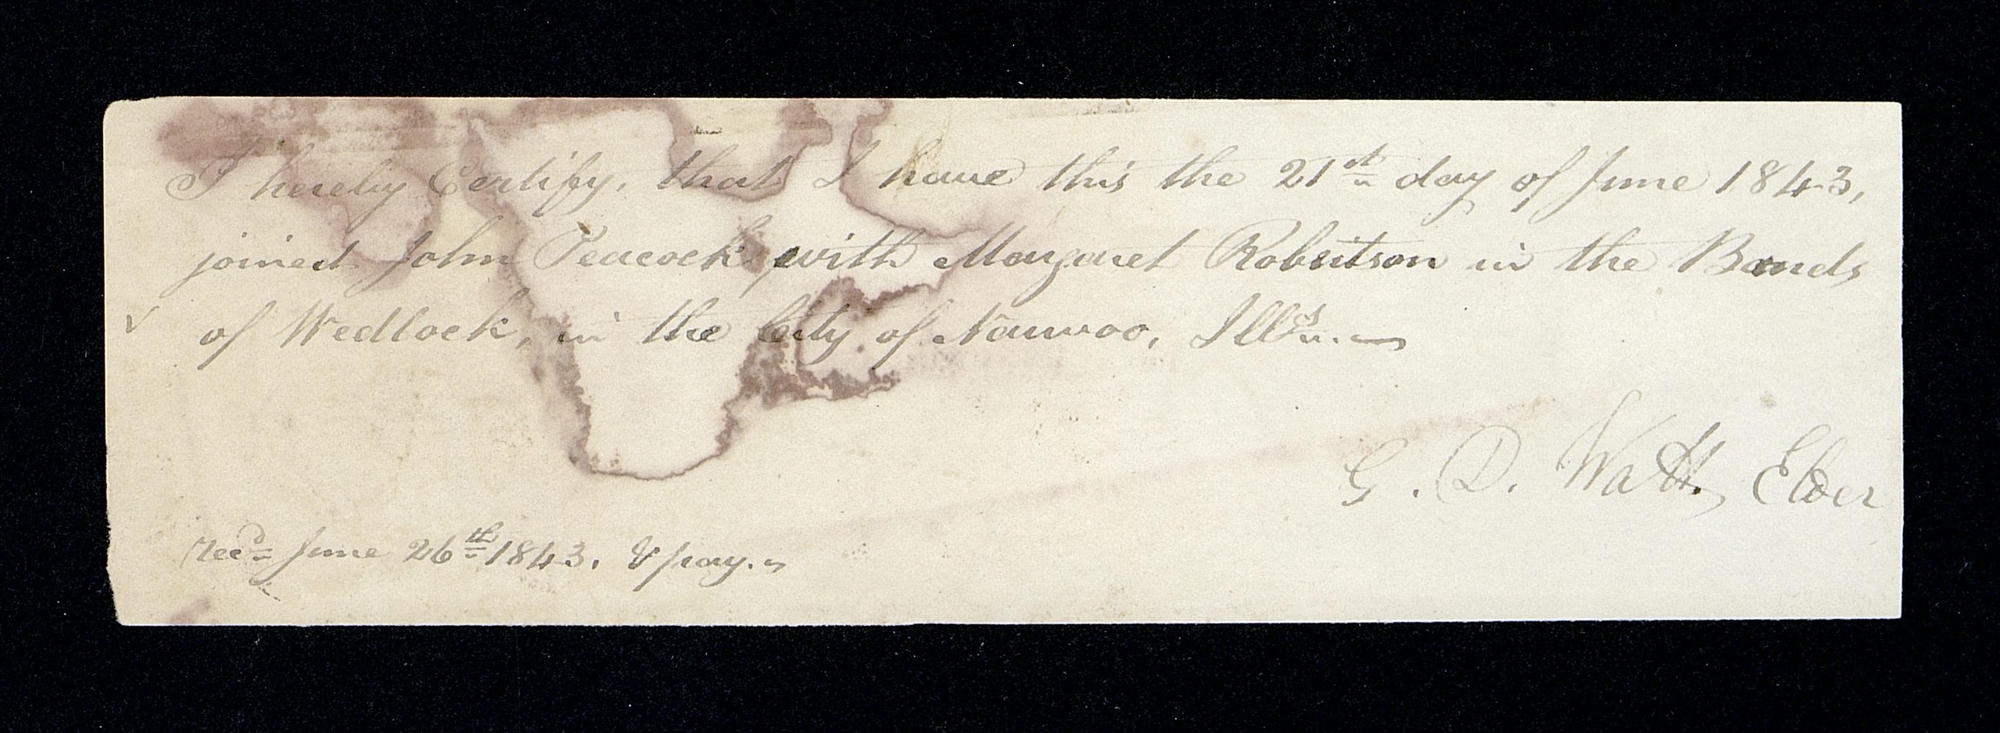 I hereby Certify, that I have this the 21st day of June 1843,
joined John Peacock with Margaret Robertson in the Bonds
of Wedlock, in the City of Nauvoo, Ills.
G. D. Watt, Elder
Recd June 26th 1843. & pay.